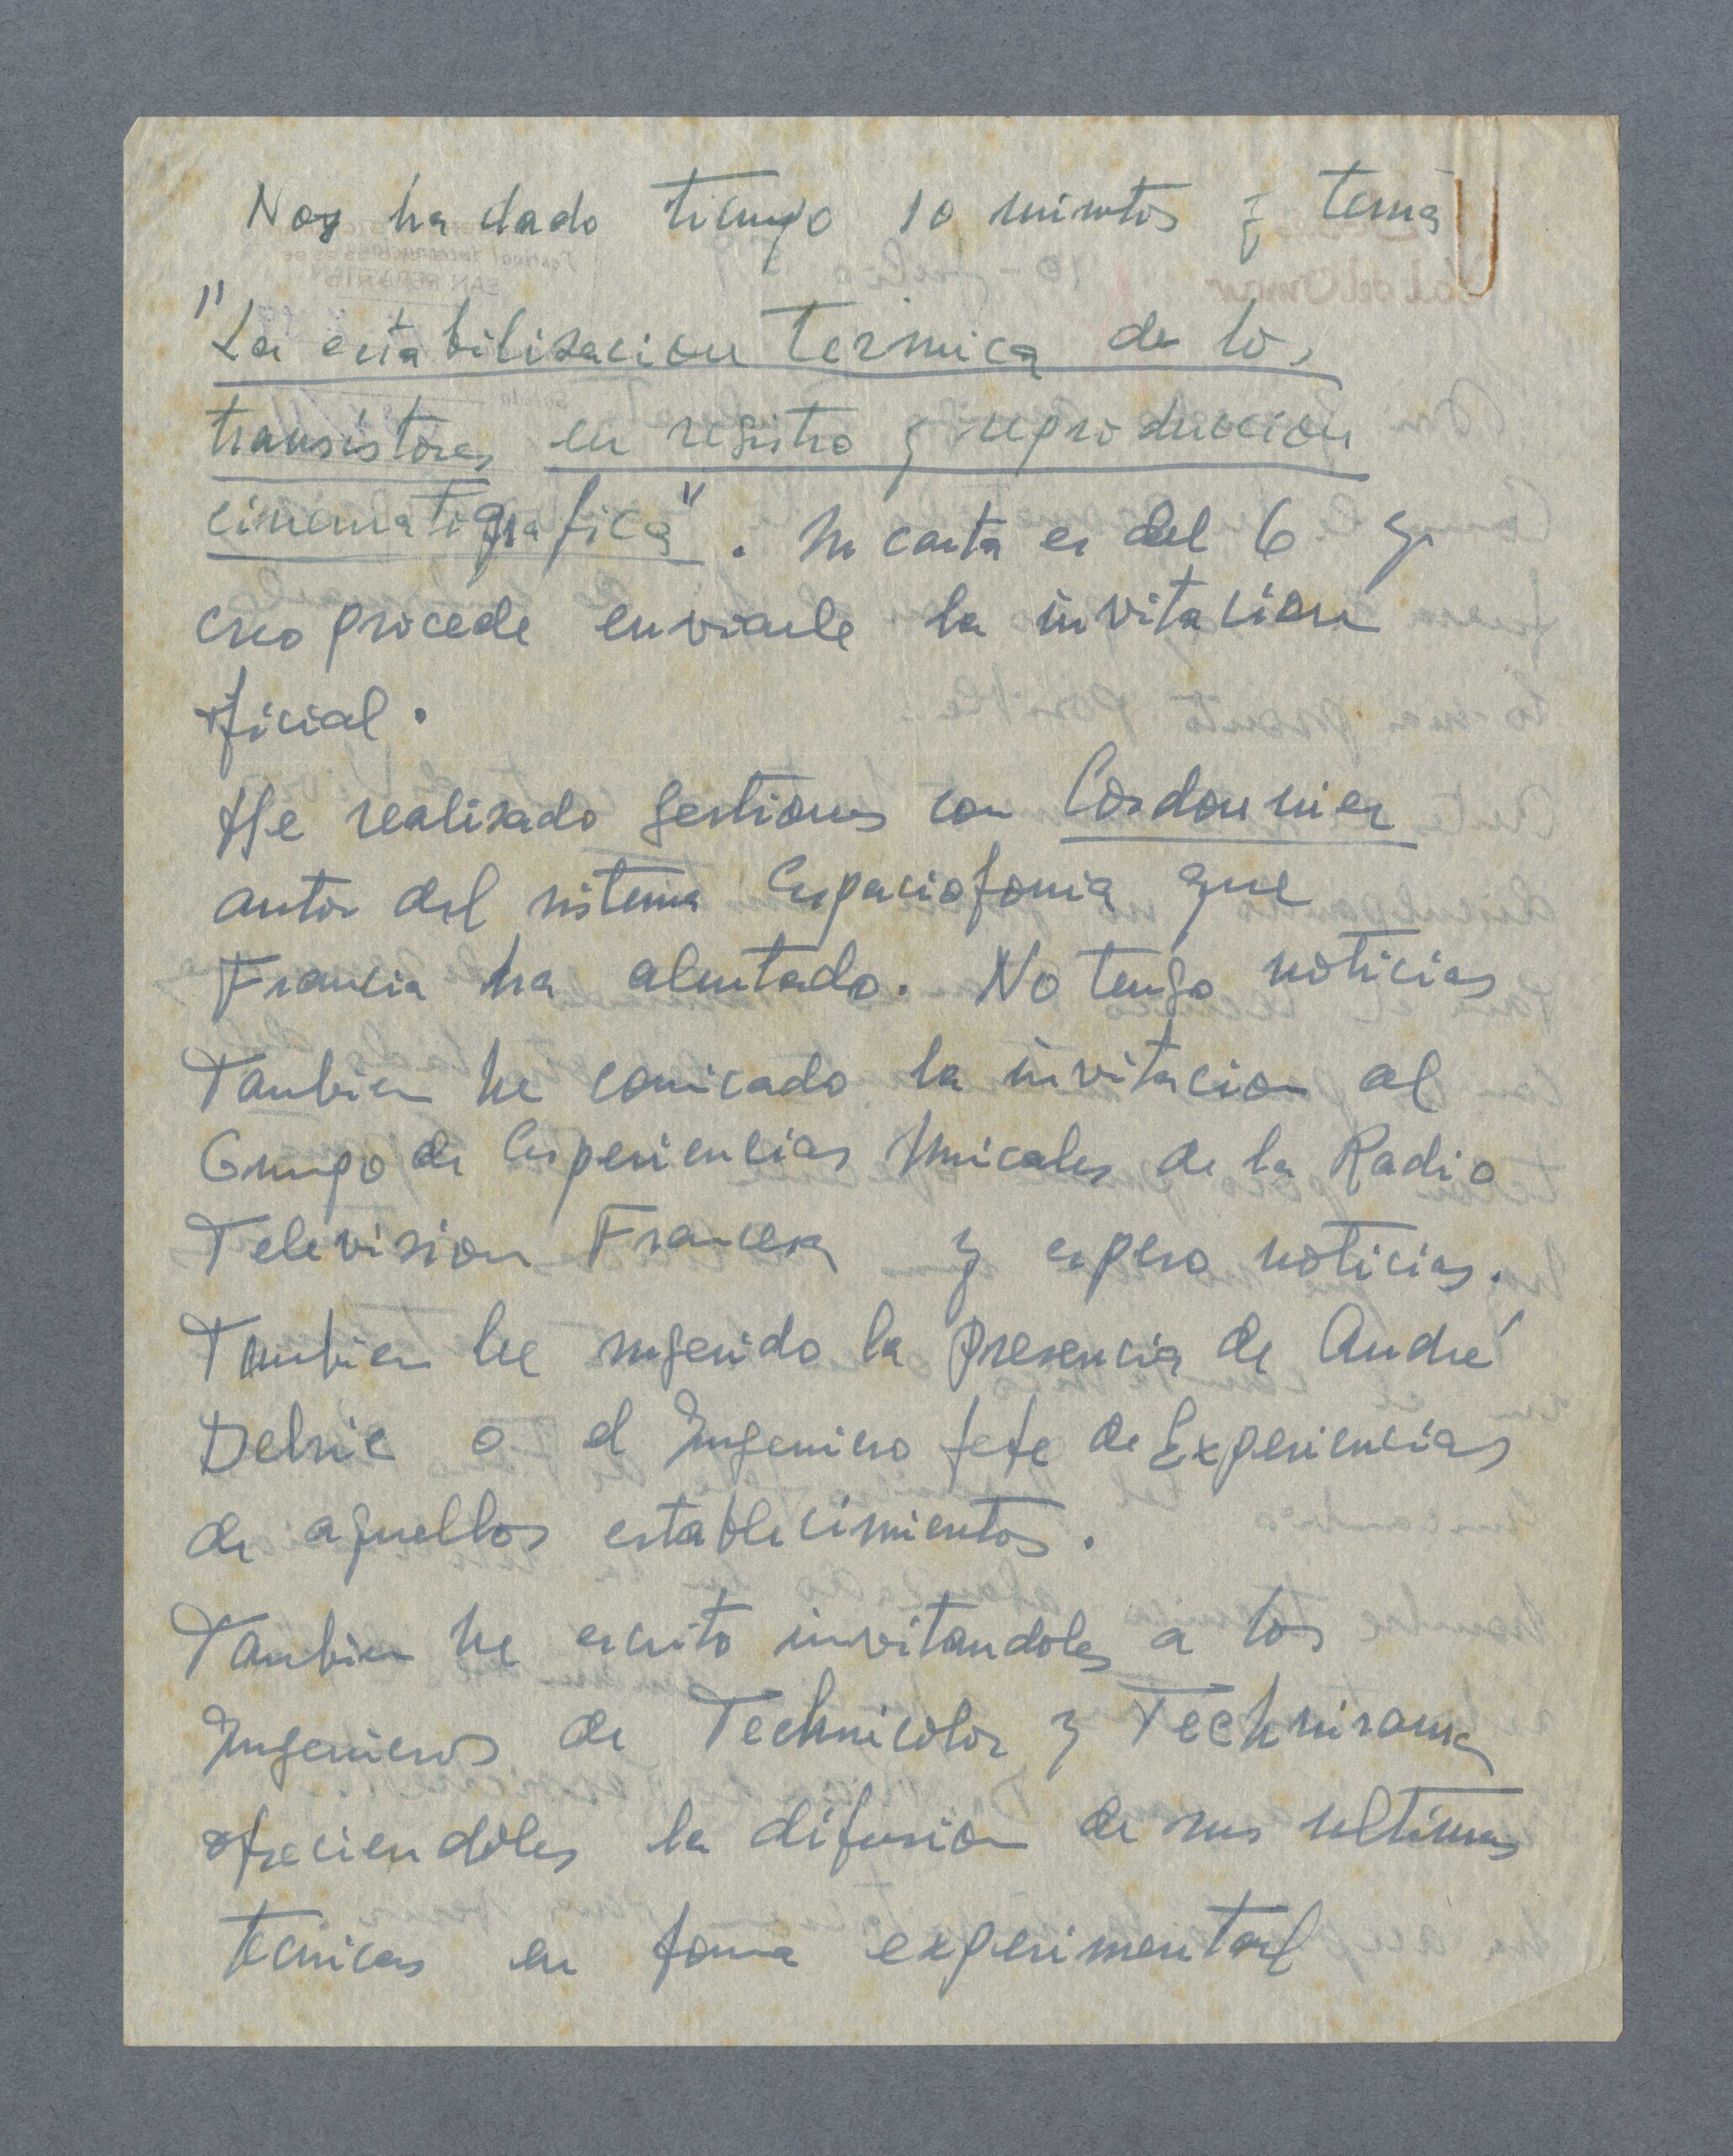 Nos ha dado tiempo 10 minutos y tema
"La estabilizacion termica de los
transistores en registro y reproduccion
cinematografica". Su carta es del 6 y
creo procede enviarle la invitacion
oficial.
He realizado gestiones con Cordonnier
autor del sistema Espaciofonia que
Francia ha alentado. No tengo noticias
Tambien he comicado la invitacion al
Grupo de Experiencias Musicales de la Radio
Television Francesa y espero noticias.
Tambien he sugerido la presencia de André
Debrie o el Ingeniero Jefe de Experiencias
de aquellos establecimientos.
Tambien he escrito invitandoles a los
Ingenieros de Technicolor y Technirama
ofreciendoles la difusion de sus ultimas
tecnicas en forma experimental